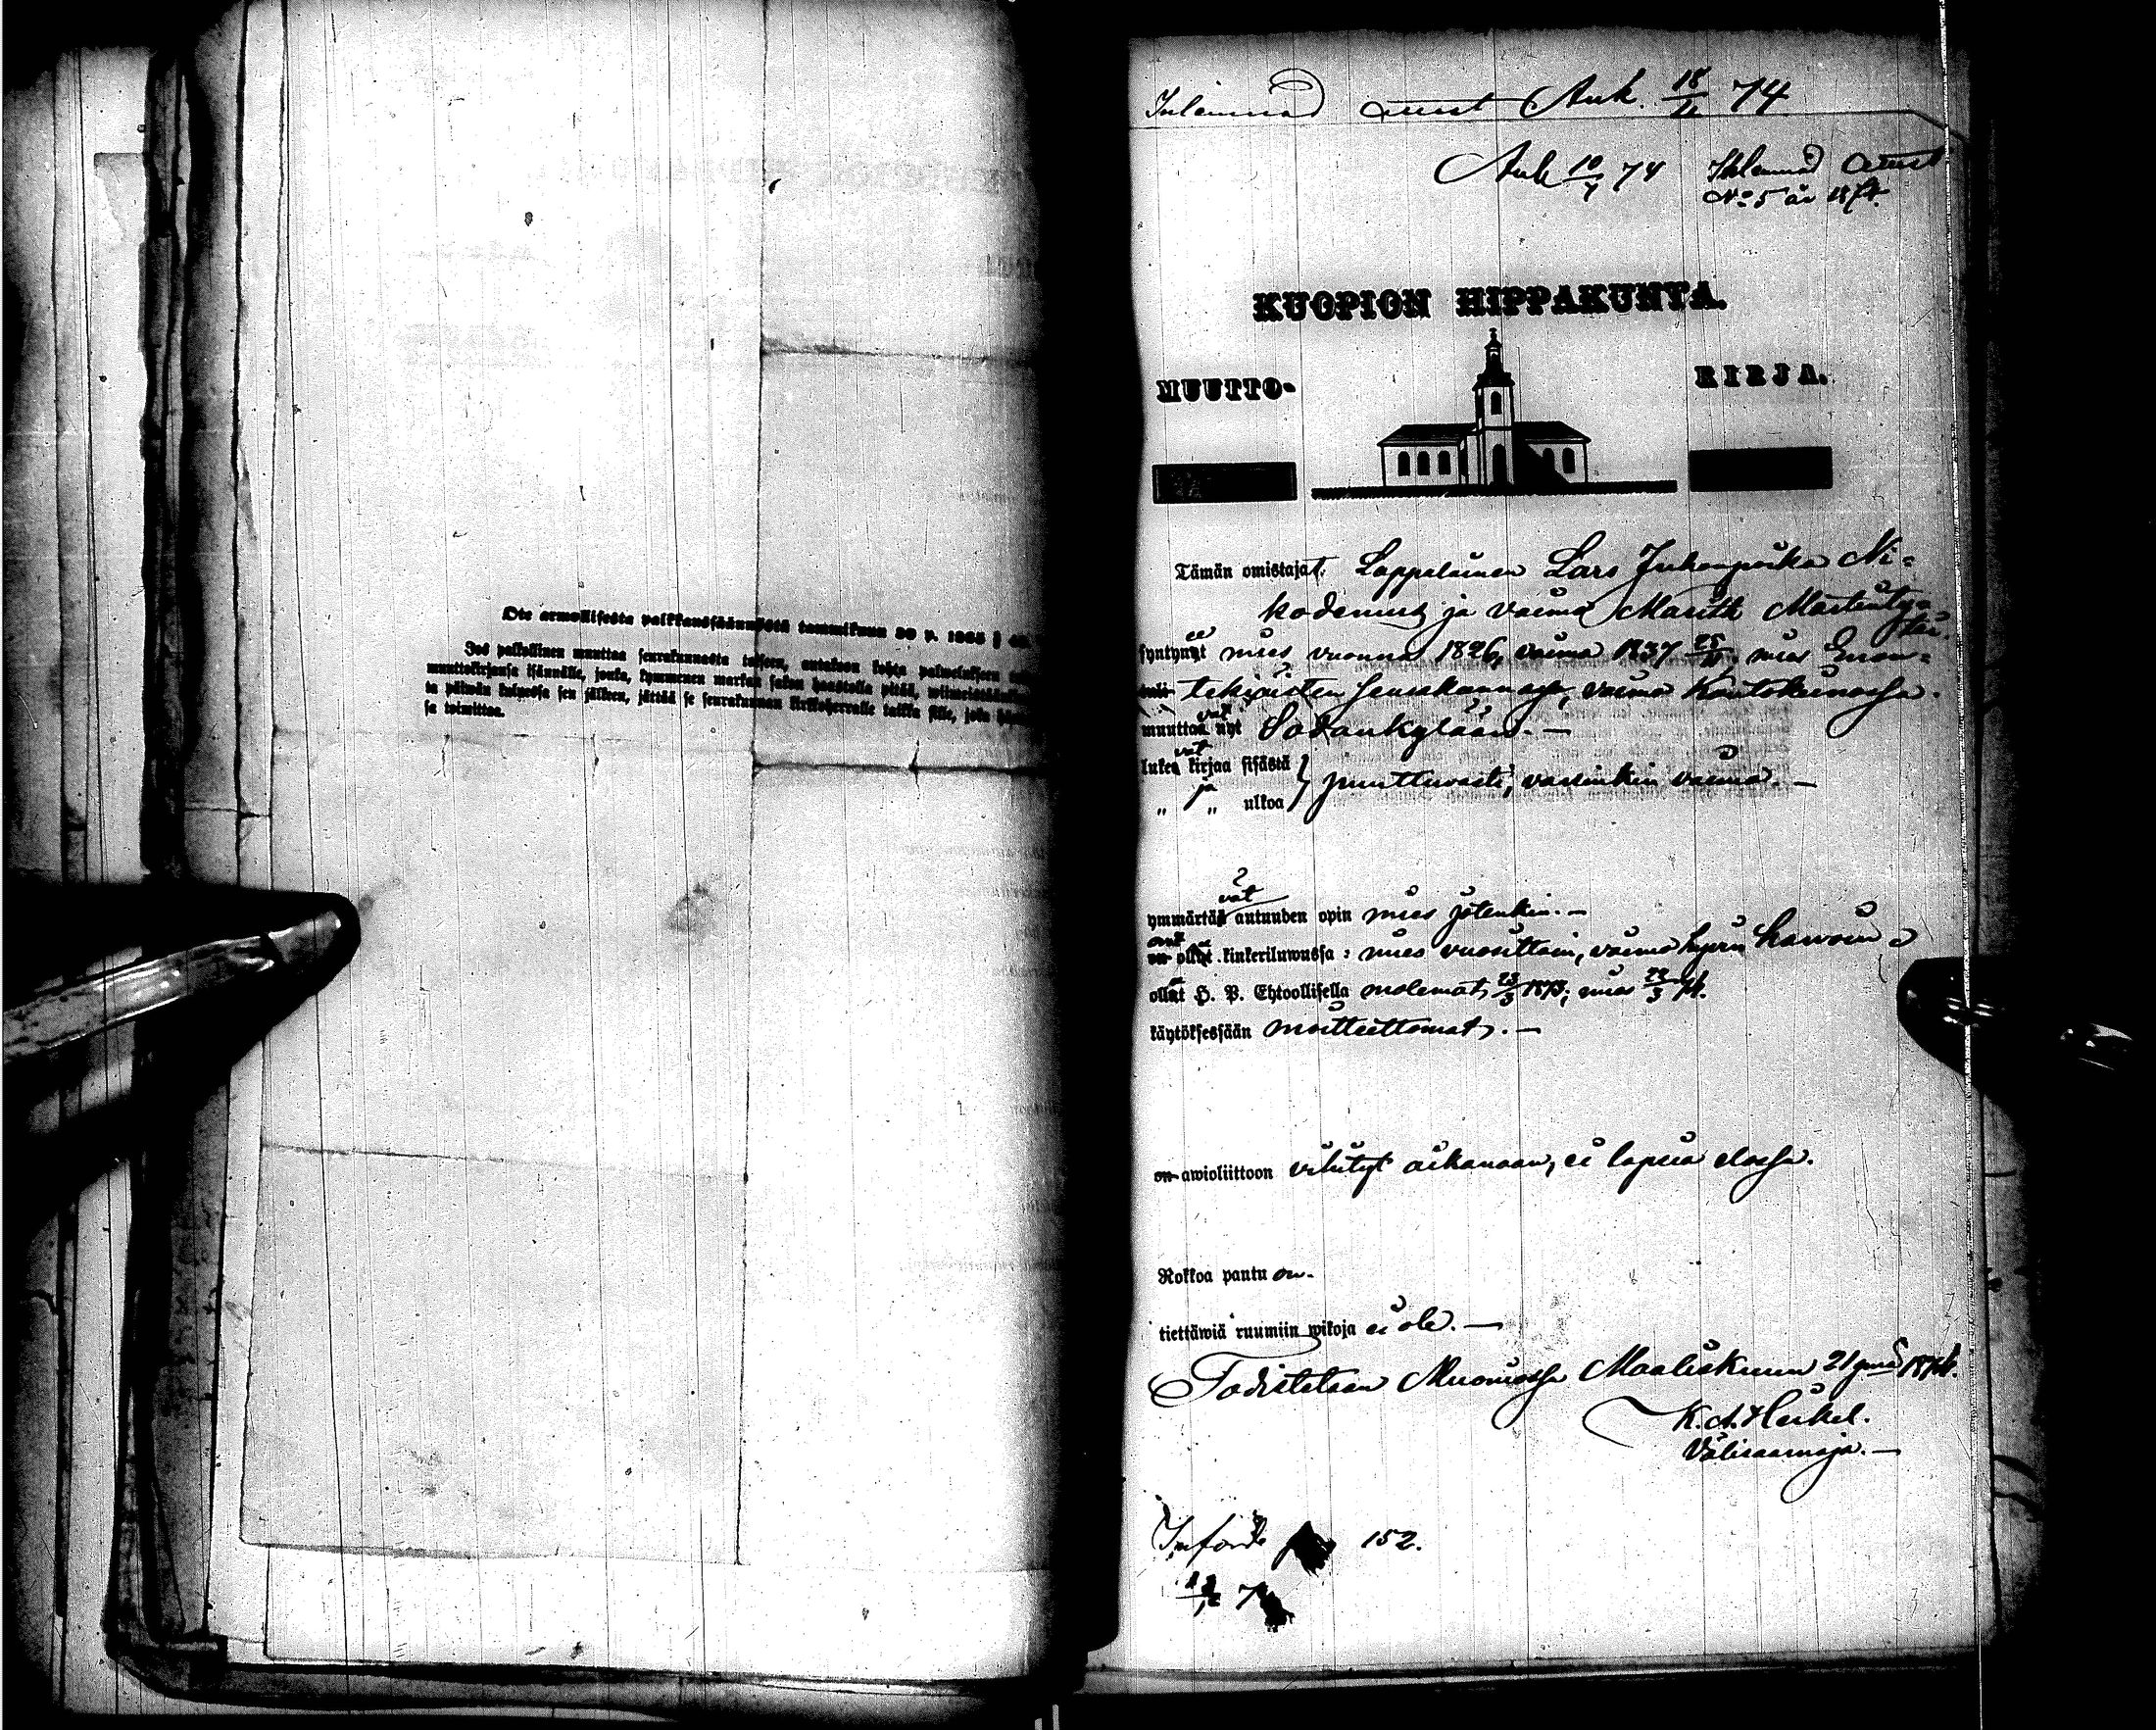 Ote armollisesta palkkaussäännöstä tammikuun 30 p. 1865 §
Jos palkollinen muuttaa seurakunnasta toiseen, antakoon kohta palwelukseen
muuttokirjansa isännälle, jonka, kymmenen markan sakon haastolla pitää, wiimeistään
ta päiwän kuluessa sen jälkeen, jättää se seurakunnan kirkkoherralle taikka sille, joka
sa toimittaa.
Inlemnad attest Ank. 18/11 74
Ank 10/4 74 Inlemnad Attest
No 5 år 1874.
KUOPION HIPPAKUNTA.
MUUTTO- KIRJA.
Tämän omistajat. Lappalainen Lars Juhonpoika Ni-
kodemus ja vaimo Marith Martintytär.
syntyneet mies vuonna 1826, vaimo 1837 25/11 mies Enon-
tekiäisten seurakunnassa, vaimo Koutokeinossa.
muuttavat nyt Sodankylään. —
lukevat kirjaa sisästä } puuttuvasti, varsinkin vaimo. —
„ ja „ ulkoa
ymmärtävät autuuden opin mies jotenkin. —
ovat olleet kinkeriluwussa: mies vuosittain, vaimo hyvin harvoin
olleet H. P. Ehtoollisella molemat 23/3 1873; mies 22/3 74.
käytöksessään moitteettomat. —
on awioliittoon vihityt aikanaan, ei lapsia elossa.
Rokkoa pantu on.
tiettäwiä ruumiin wikoja ei ole. —
Todistetaan Muoniossa Maaliskuun 21 pnä 1874.
K. A. Heikel.
Välisaarnaaja. —
Införde 152.